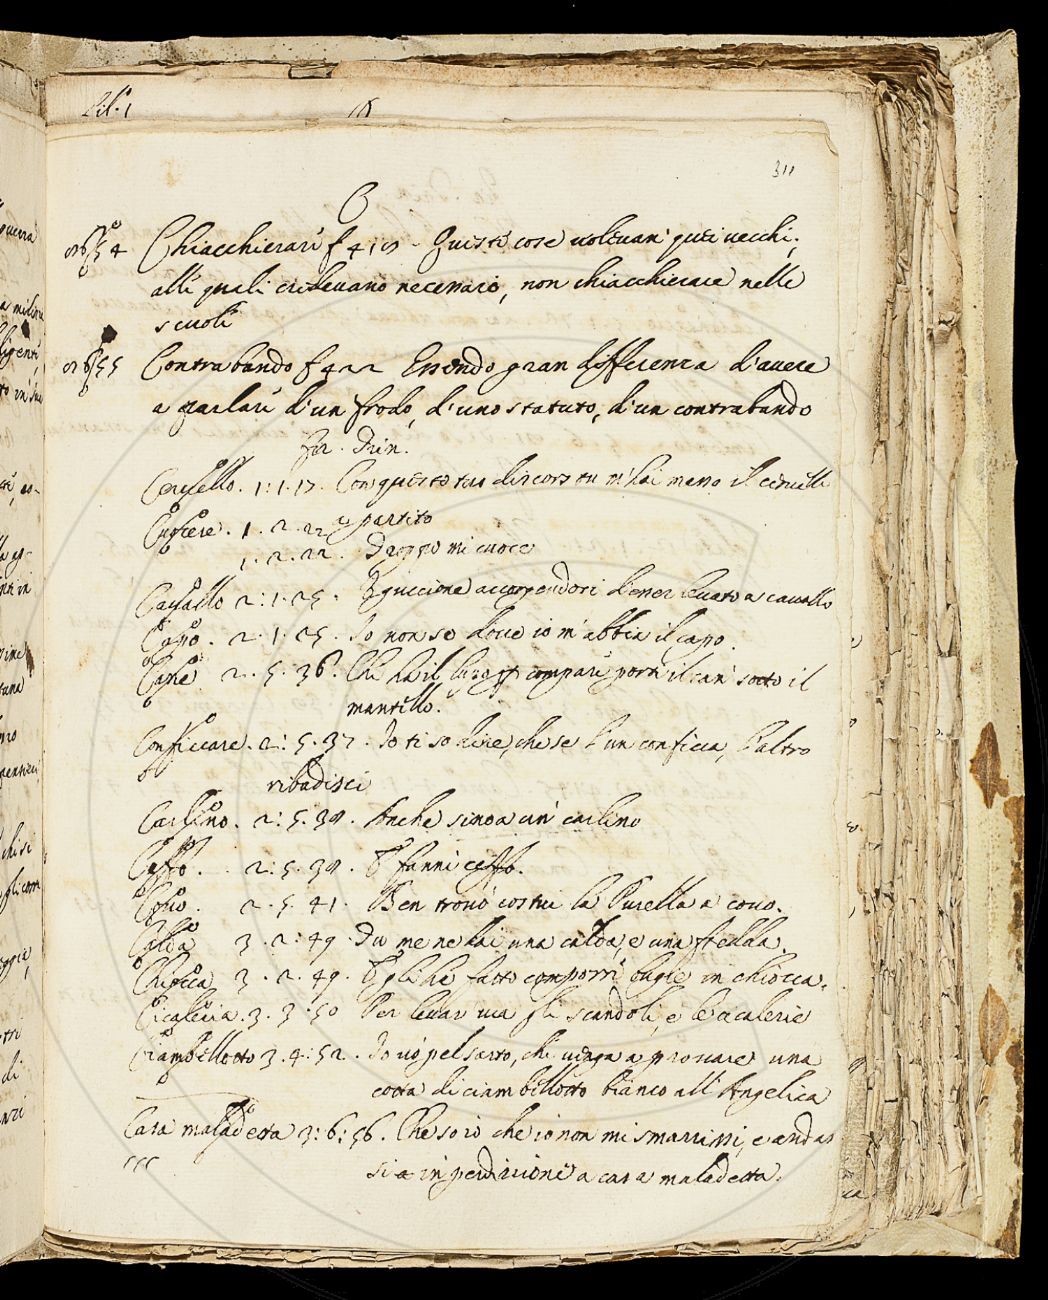 311
C
Chiacchierare f 419 - Queste cose volevan quei vecchi,
alli quali credevano necessario, non chiacchierare nelle
scuole
Contrabando f 422 Essendo gran differenza d'avere
a parlare d'un frodo, d'uno statuto, d'un contrabando
Cervello . 1 : 1 . 17 . Con questo tuo discorso tu m'hai messo il cervello
Cuocere . 1 . 2 . 22 a partito
1 . 2 . 22 . Troppo mi cuoce
Cavallo 2 : 1 . 25 . Eguccione accorgendosi d'esser levato a cavallo
Capo . 2 . 1 . 25 . Io non so dove io m'abbia il capo .
Cane 2 . 5 . 36 . Chi ha il compare porti il can' sotto il
mantello .
Conficcare . 2 : 5 . 37 . Io ti so dire, che se l'un conficca, l'altro
ribadisci
Carlino . 2 : 5 . 38 . Anche sino a un' carlino
Ceffo . 2 : 5 . 38 . E fanni ceffo .
Covo . 2 . 5 41 . Ben trovò costui la Purella a covo .
Calda 3 . 2 : 49 . Tu me ne dai una calda, e una fredda .
Chiocca 3 . 2 . 49 . E gli hà fatto compor bugie in chiocca .
Cicaleria . 3 . 3 : 50 Per levar via gli scandoli, e le cicalerie
Ciambellotto 3 . 4 : 52 . Io vò pel sarto, che venga a provare una
cotta di ciambellotto bianco all' Angelica
Casa maladetta 3 : 6 : 56 . Che so io che io non mi smarrissi, e andas
si in perdizione a casa maladetta .